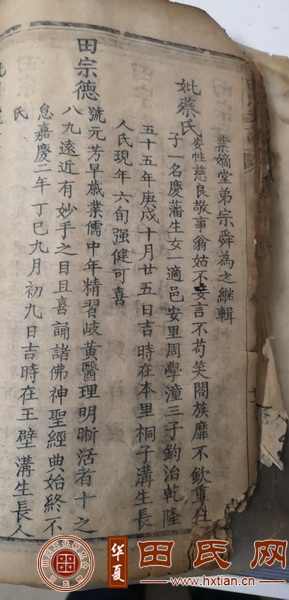 嫡堂弟宗舜為之維輯
妣蔡氏
姿性慈良敬事翁姑不妄言不苟笑閤族靡不欽重生
子一名慶藩生女一適邑安里周學潼三子鈞治乾隆
五十五年庚戌十月廿五日吉時在本里桐子溝生長
人氏現年六旬强健可喜
田宗德
號元芳早歲業儒中年精習岐黃醫理明晰活者十之
八九遠近有妙手之目且喜誦諸佛神聖經典始終不
怠嘉慶二年丁巳九月初九日吉時在王壁溝生長人
氏
华夏
田氏网
www.hxtian.cn